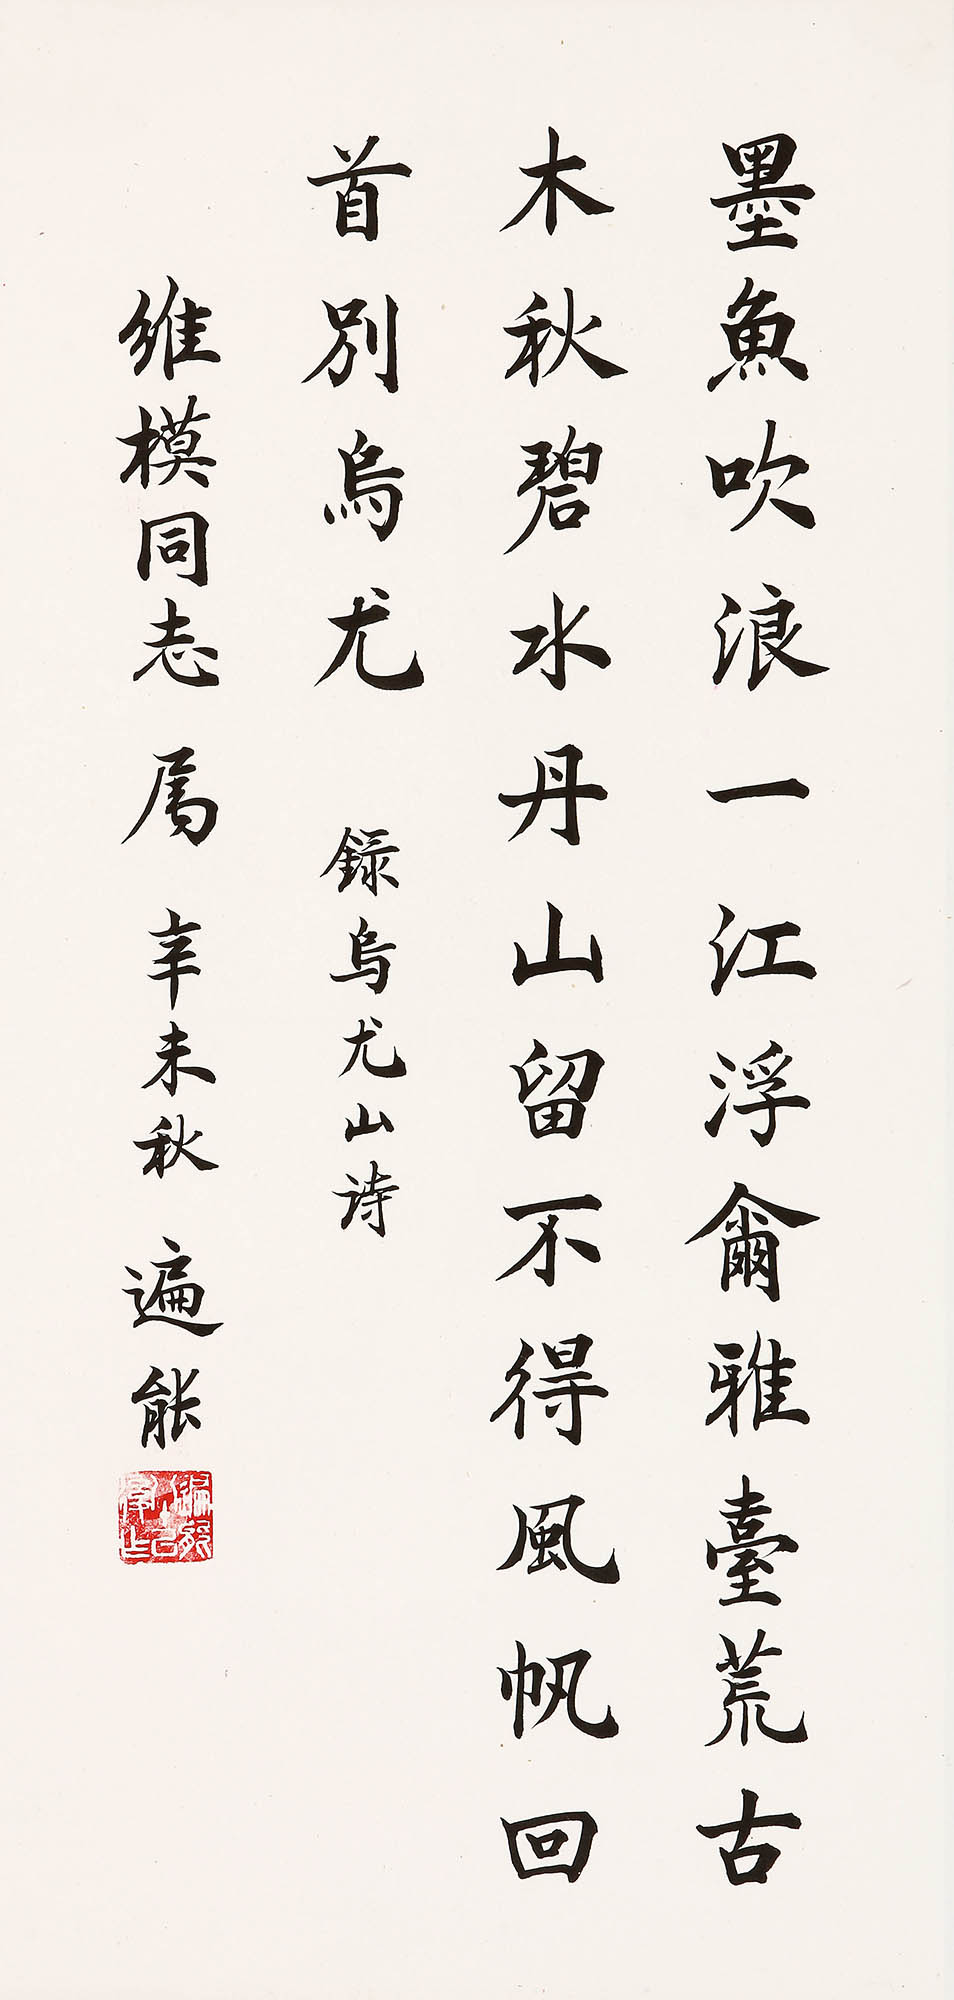 墨魚吹浪一江浮爾雅臺荒古
木秋碧水丹山留不得風帆回
首別烏尤 録烏尤山诗
維模同志属 辛未秋 遍能